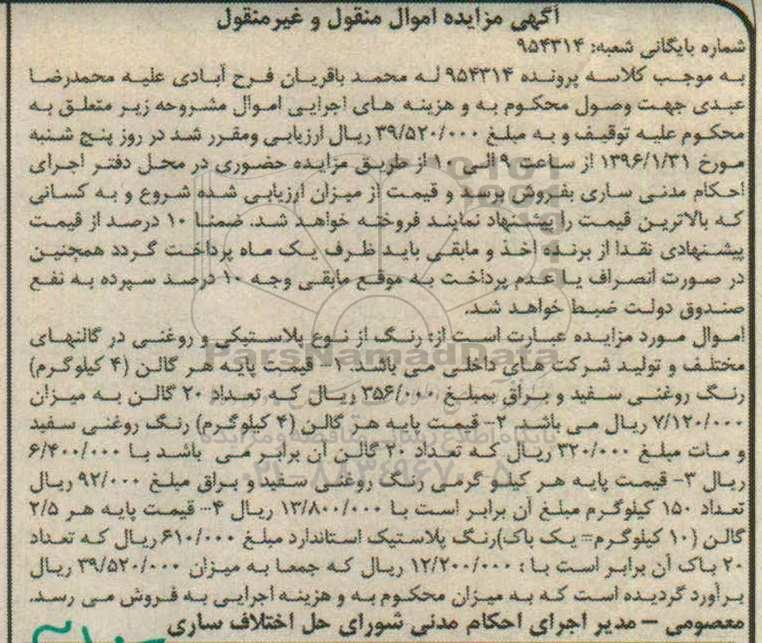 آگهی مزایده اموال منقول و غیرمنقول
شماره بایگانی شعبه: ۹۵۴۳۱۴
به موجب کلاسه پرونده ۹۵۴۳۱۴ له محمد باقریان فرح آبادی علیه محمدرضا
عبدی جهت وصول محکوم به و هزینه های اجرایی اموال مشروحه زیر متعلق به
محکوم علیه توقیف و به مبلغ ۳۹/۵۲۰/۰۰۰ ریال ارزیابی ومقرر شد در روز پنج شنبه
مورخ ۱۳۹۶/۱/۳۱ از ساعت ۹ الی ۱۰ از طریق مزایده حضوری در محل دفتر اجرای
احکام مدنی ساری بفروش برسد و قیمت از میزان ارزیابی شده شروع و به کسانی
که بالاترین قیمت را پیشنهاد نمایند فروخته خواهد شد. ضمنا ۱۰ درصد از قیمت
پیشنهادی نقدا از برنده اخذ و مابقی باید ظرف یک ماه پرداخت گردد همچنین
در صورت انصراف یا عدم پرداخت به موقع مابقی وجه ۱۰ درصد سپرده به نفع
صندوق دولت ضبط خواهد شد.
اموال مورد مزایده عبارت است از: رنگ از نوع پلاستیکی و روغنی در گالنهای
مختلف و تولید شرکت های داخلی می باشد. ۱- قیمت پایه هر گالن (۴ کیلوگرم)
رنگ روغنی سفید و براق بمبلغ ۳۵۶/۰۰۰ ریال که تعداد ۲۰ گالن به میزان
۷/۱۲۰/۰۰۰ ریال می باشد ۲- قیمت پایه هر گالن (۴ کیلوگرم) رنگ روغنی سفید
و مات مبلغ ۳۲۰/۰۰۰ ریال که تعداد ۲۰ گالن آن برابر می باشد با ۶/۴۰۰/۰۰۰
ریال ۳- قیمت پایه هر کیلو گرمی رنگ روغنی سفید و براق مبلغ ۹۲/۰۰۰ ریال
تعداد ۱۵۰ کیلوگرم مبلغ آن برابر است با ۱۳/۸۰۰/۰۰۰ ریال ۴- قیمت پایه هر ۲/۵
گالن (۱۰ کیلوگرم= یک باک)رنگ پلاستیک استاندارد مبلغ ۶۱۰/۰۰۰ ریال که تعداد
۲۰ باک آن برابر است با : ۱۲/۲۰۰/۰۰۰ ریال که جمعا به میزان ۳۹/۵۲۰/۰۰۰ ریال
برآورد گردیده است که به میزان محکوم به و هزینه اجرایی به فروش می رسد.
معصومی – مدیر اجرای احکام مدنی شورای حل اختلاف ساری
ParsNamadData